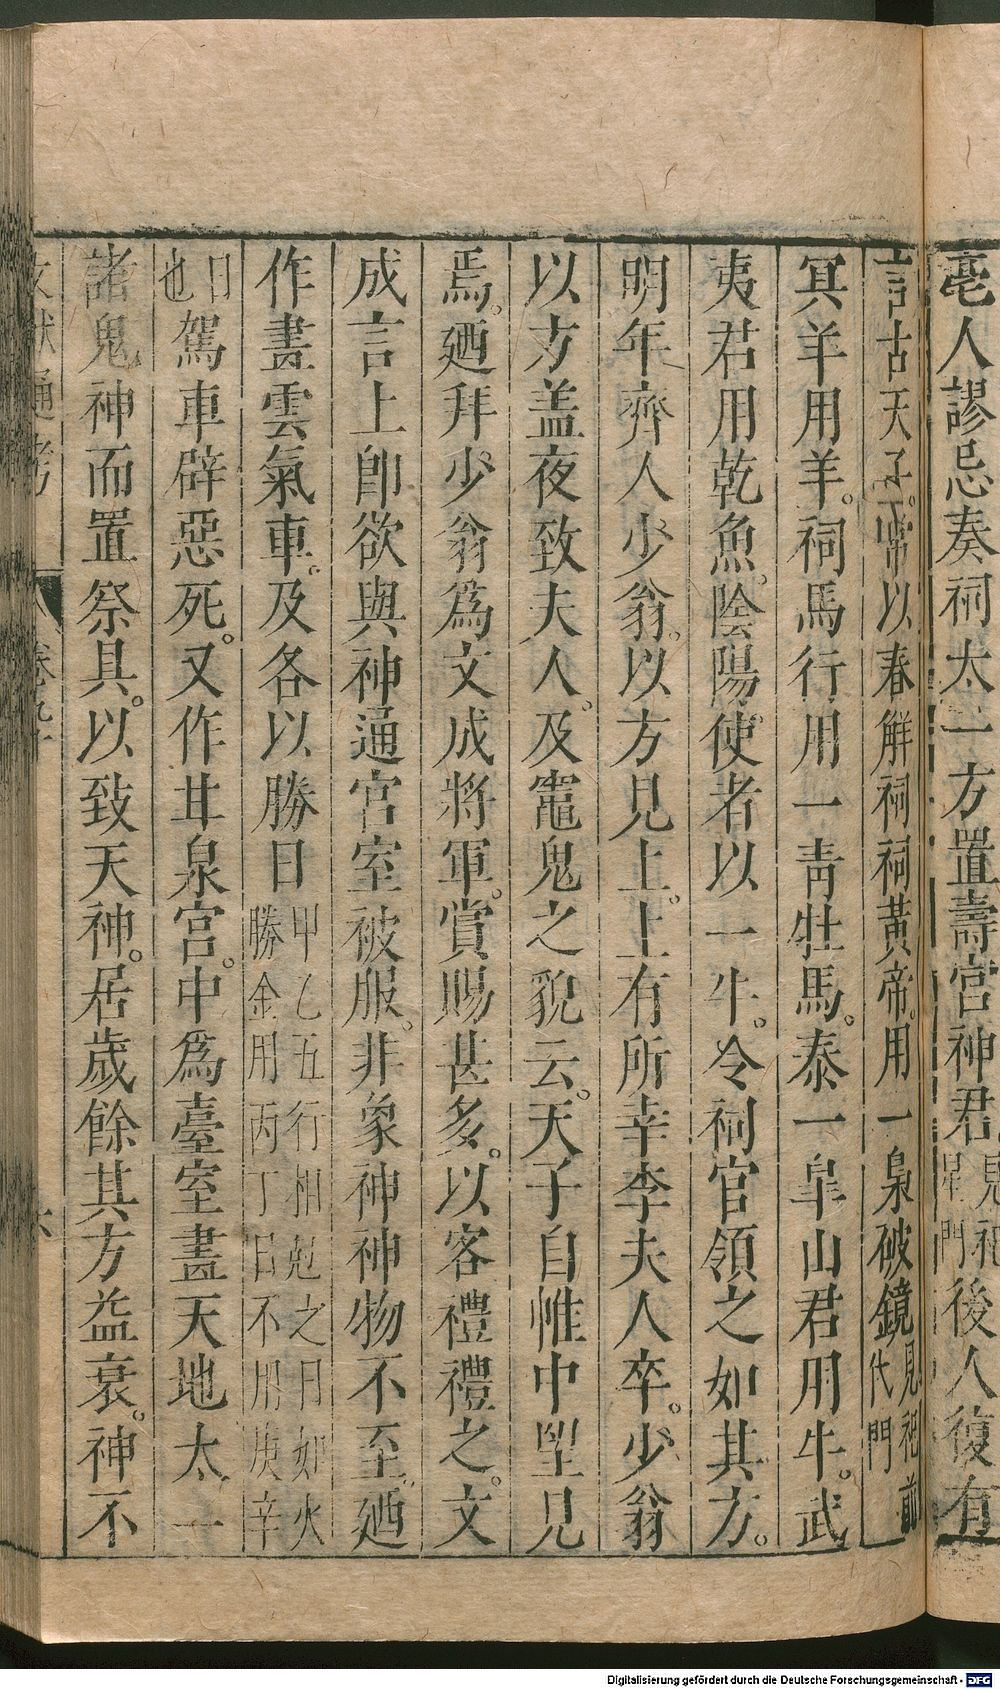 亳人謬忌奏祠太一方置壽宮神君鬼祀星門後人復有
言古天子常以春解祠祠黃帝用一梟破鏡見祀前代門
冥羊用羊。祠馬行用一靑牡馬。泰一皐山君用牛。武
夷君用乾魚。陰陽使者以一牛。令祠官領之如其方。
明年齊人少翁。以方見上。上有所幸李夫人卒。少翁
以方盖夜致夫人。及竈鬼之貌云。天子自帷中朢見
焉。廼拜少翁爲文成將軍。賞賜甚多。以客禮禮之。文
成言上卽欲與神通宮室被服。非象神神物不至。廼
作畫雲氣車。及各以勝日甲乙五行相尅之日如火勝金用丙丁日不用庚辛
日也駕車辟惡死。又作甘泉宮。中爲臺室畫天地太一
諸鬼神而置祭具。以致天神。居歲餘其方益衰。神不
文獻通考 卷九十 六
Digitalisierung gefördert durch die Deutsche Forschungsgemeinschaft - DFG